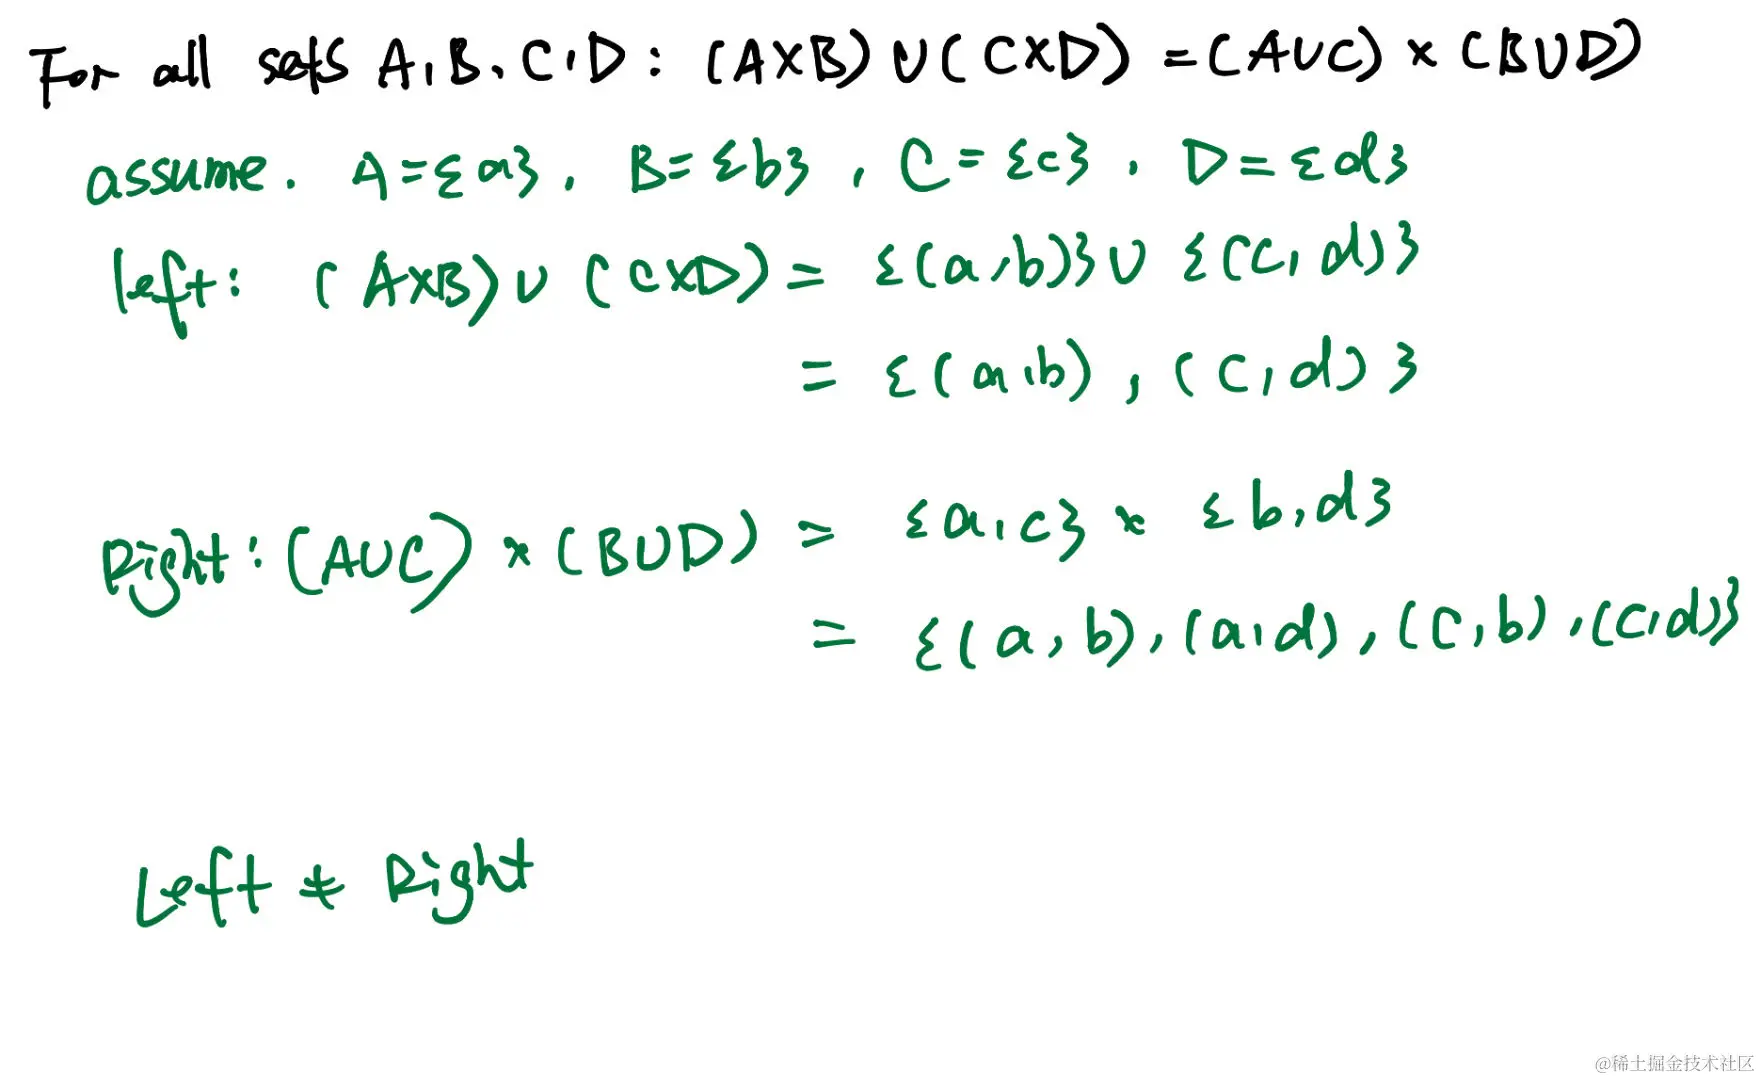 For all sets A, B, C, D : (A×B) ∪ (C×D) = (A∪C) × (B∪D)
assume. A = {a}, B = {b}, C = {c}, D = {d}
left: (A×B) ∪ (C×D) = {(a,b)} ∪ {(c,d)}
= {(a,b), (c,d)}
Right: (A∪C) × (B∪D) = {a,c} × {b,d}
= {(a,b), (a,d), (c,b), (c,d)}
Left ≠ Right
@稀土掘金技术社区